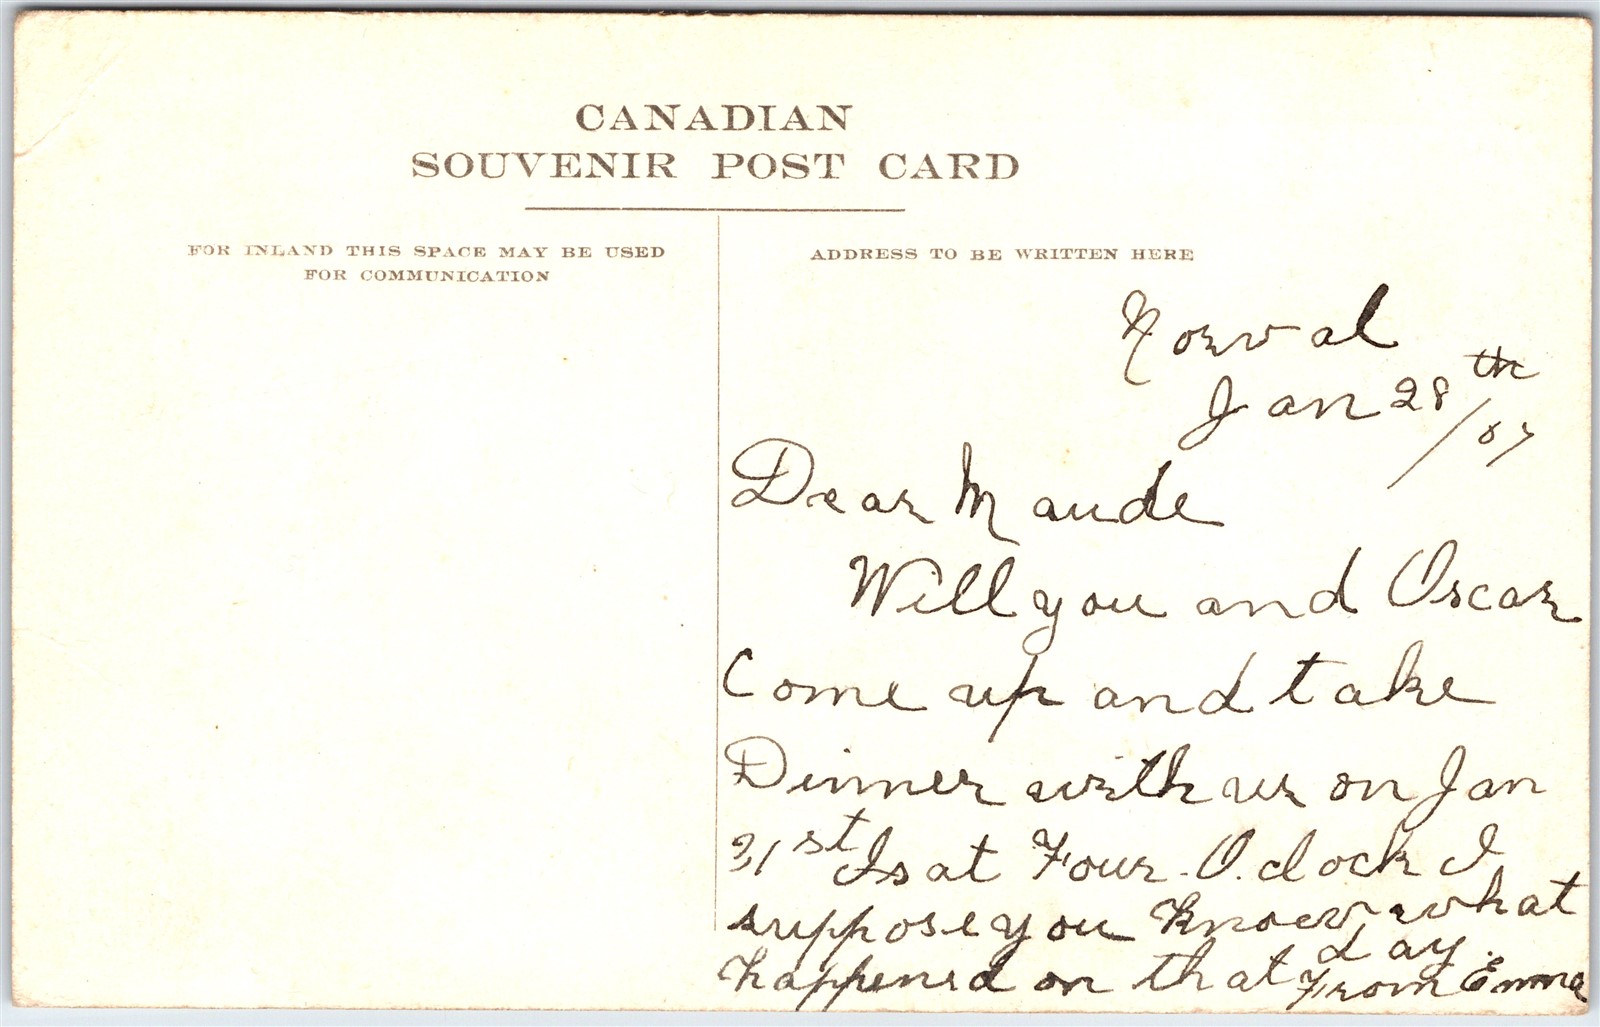 CANADIAN
SOUVENIR POST CARD
FOR INLAND THIS SPACE MAY BE USED
FOR COMMUNICATION
ADDRESS TO BE WRITTEN HERE
Norval
Jan 28th/07
Dear Maude
Will you and Oscar
Come up and take
Dinner with us on Jan
31st Is at Four O.clock I
suppose you know what
happened on that day.
From Emma